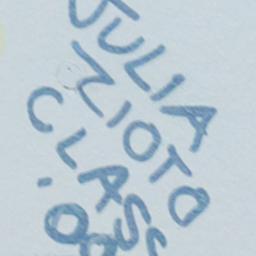 JULIA
ZIOTO
CLASS
.08